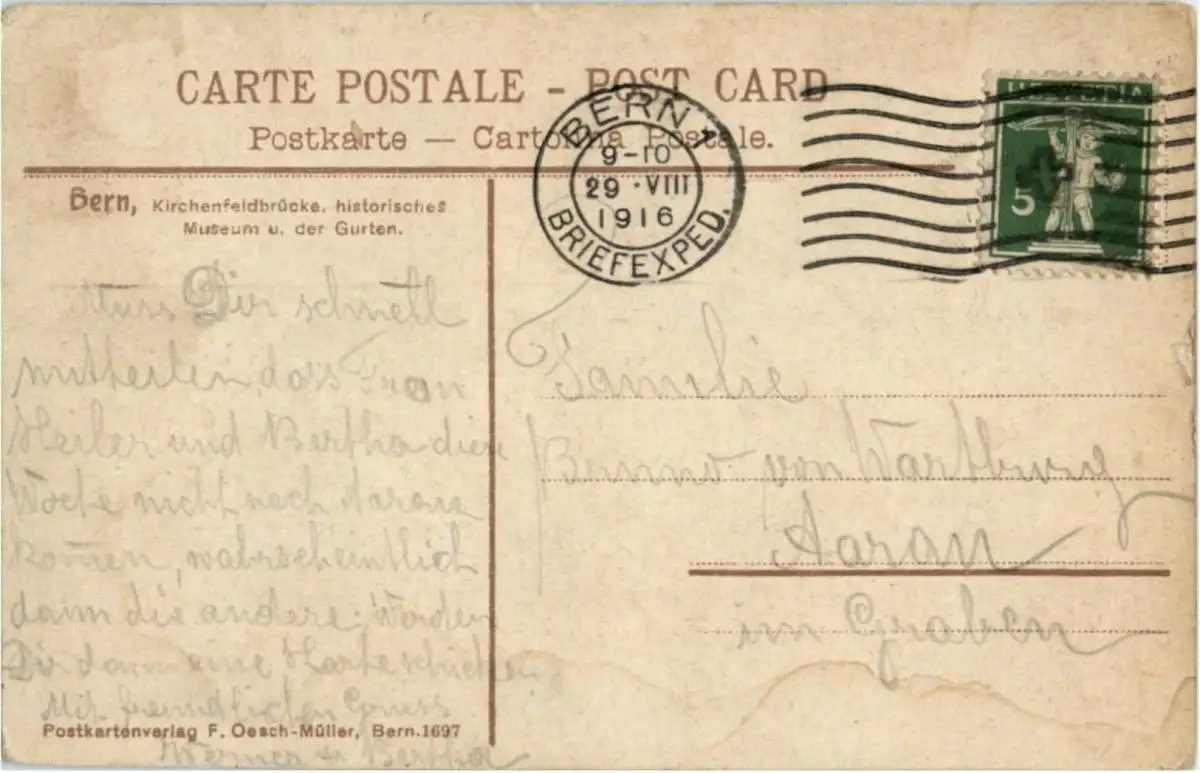 CARTE POSTALE - POST CARD
Postkarte — Cartolina Postale.
BERN 1
9-10
29 · VIII
1916
BRIEFEXPED.
HELVETIA
5
Bern, Kirchenfeldbrücke, historisches
Museum u. der Gurten.
Muss Dir schnell
mitteilen, dass Frau
Heiler und Bertha diese
Woche nicht nach Aarau
komen, wahrscheintlich
dann die andere. Werden
Dir dann eine Karte schicken
Mit freundlichen Gruss
Werner & Bertha
Postkartenverlag F. Oesch-Müller, Bern.1697
Familie
Benno von Wartburg
Aarau
im Graben